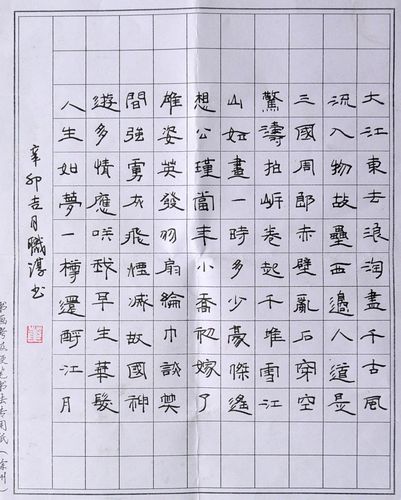 大江東去浪淘盡千古風
流人物故壘西邊人道是
三國周郎赤壁亂石穿空
驚濤拍岸卷起千堆雪江
山如畫一時多少豪傑遙
想公瑾當年小喬初嫁了
雄姿英發羽扇綸巾談笑
間強虜灰飛煙滅故國神
遊多情應笑我早生華髮
人生如夢一樽還酹江月
辛卯吉月書
书画考级硬笔书法专用纸（徐州）